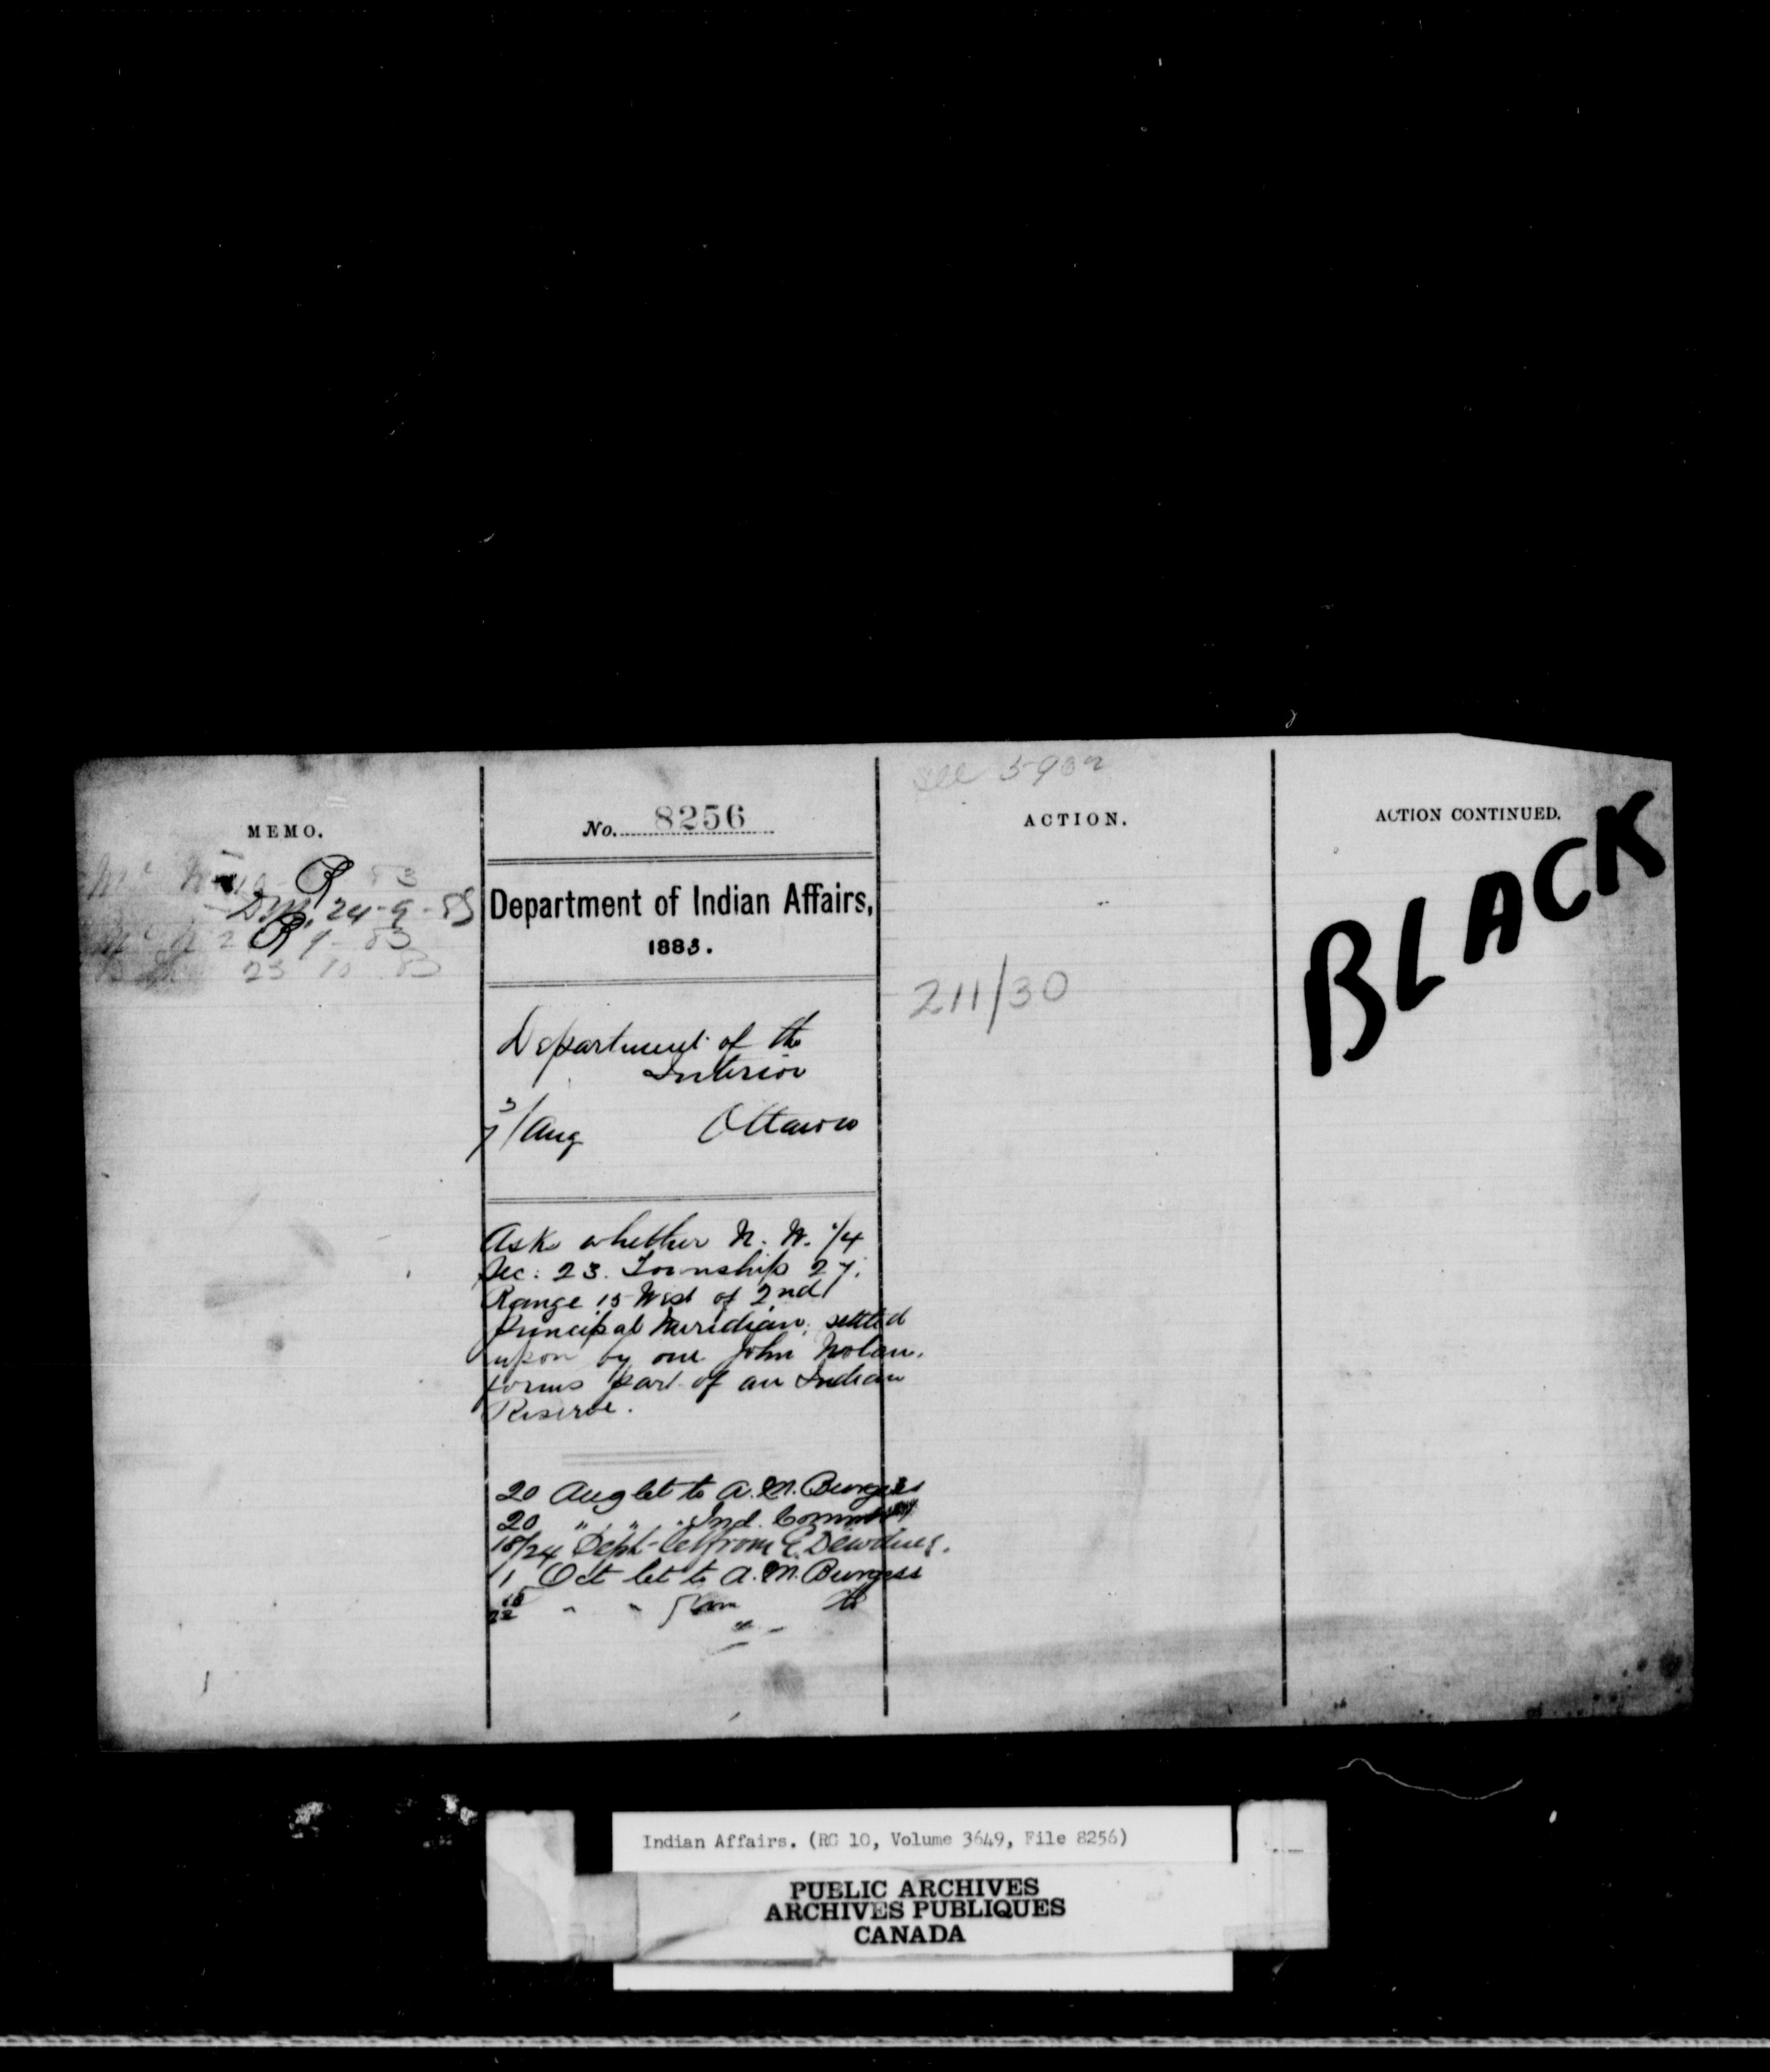 see 590
MEMO.
83
D.M. 24-9-83
R 9-83
23 10 83
No. 8256
Department of Indian Affairs,
1883.
Department of the
Interior
3/7 Aug Ottawa
Ask whether N. W. 1/4
Sec: 23. Township 27.
Range 15 West of 2nd
Principal Meridian, settled
upon by one John Nolan.
forms part of an Indian
Reserve.
20 Aug let to A. M. Burgess
20 " " " Ind. Commr
18/24 Sept- let from E. Dewdney.
1 Oct let to A. M. Burgess
15/22 " " from do
ACTION.
211/30
ACTION CONTINUED.
BLACK
Indian Affairs. (RG 10, Volume 3649, File 8256)
PUBLIC ARCHIVES
ARCHIVES PUBLIQUES
CANADA